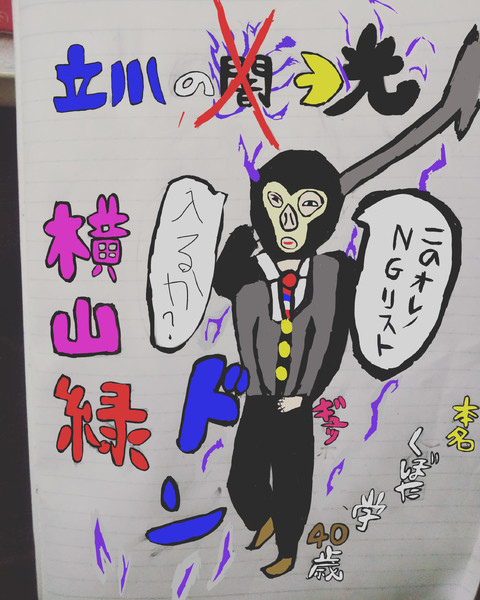 立川の闇→光
横山緑
このオレノ
NGリスト
入るか?
ドン
ギュッ
本名
くぼた
学
40歳